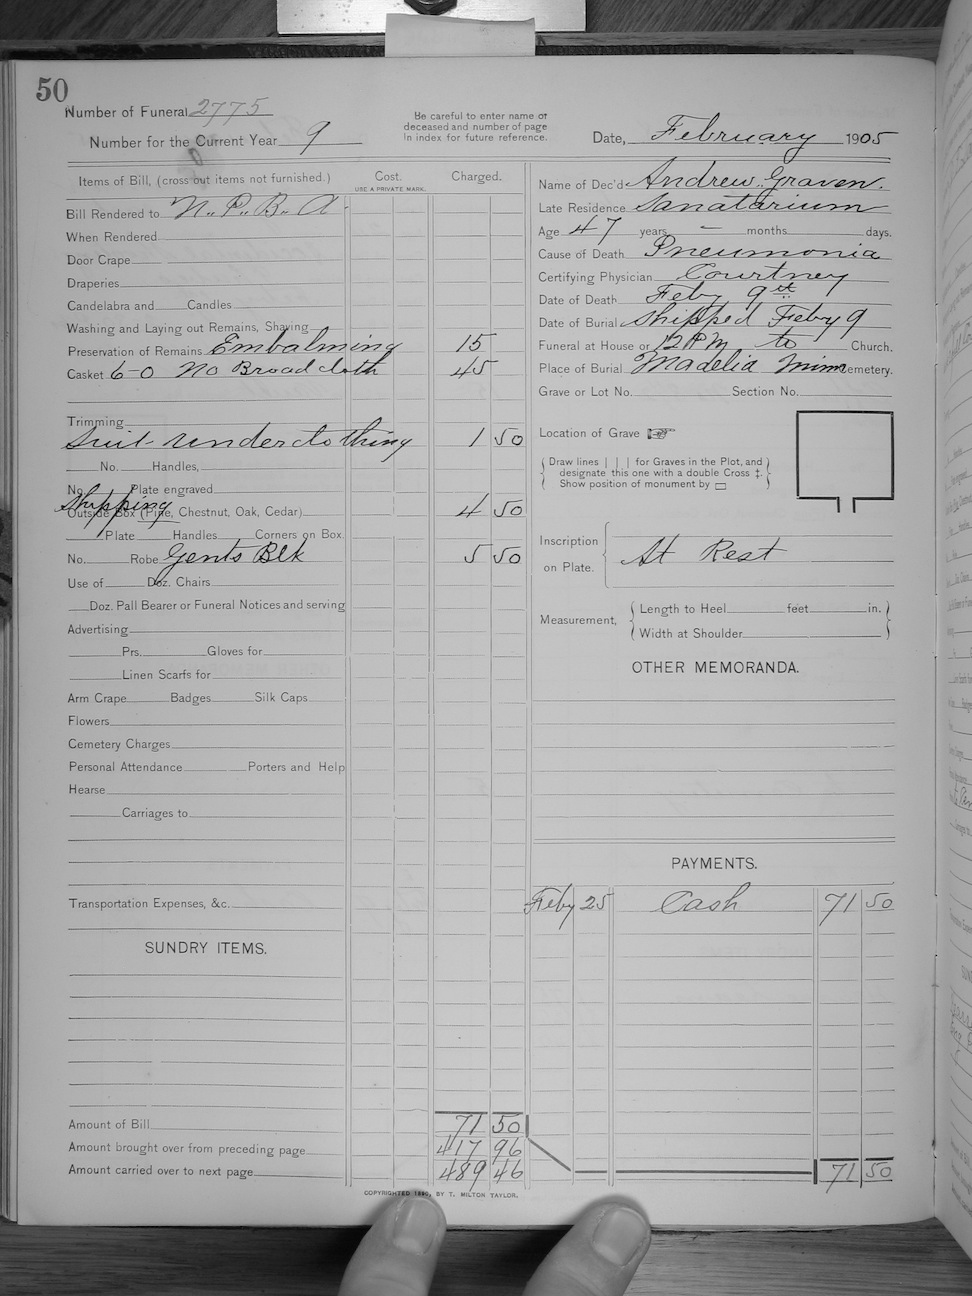 50
Number of Funeral 2775
Number for the Current Year 9
Be careful to enter name of
deceased and number of page
in index for future reference.
Date, February 1905
Items of Bill, (cross out items not furnished.)
Cost.
USE A PRIVATE MARK.
Charged.
Bill Rendered to N. P. B. A.
When Rendered
Door Crape
Draperies
Candelabra and Candles
Washing and Laying out Remains, Shaving
Preservation of Remains Embalming 15
Casket 6-0 No Broadcloth 45
Trimming
Suit underclothing 1 50
No. Handles,
No. Plate engraved
Shipping
Outside Box (Pine, Chestnut, Oak, Cedar) 4 50
Plate Handles Corners on Box.
No. Robe Gents Blk 5 50
Use of Doz. Chairs
Doz. Pall Bearer or Funeral Notices and serving
Advertising
Prs. Gloves for
Linen Scarfs for
Arm Crape Badges Silk Caps
Flowers
Cemetery Charges
Personal Attendance Porters and Help
Hearse
Carriages to
Transportation Expenses, &c.
SUNDRY ITEMS.
Amount of Bill 71 50
Amount brought over from preceding page 417 96
Amount carried over to next page 489 46
Name of Dec'd Andrew Graven.
Late Residence Sanatarium
Age 47 years — months days.
Cause of Death Pneumonia
Certifying Physician Courtney
Date of Death Feby 9th
Date of Burial shipped Feby 9
Funeral at House or 12 PM to Church.
Place of Burial Madelia Minn Cemetery.
Grave or Lot No. Section No.
Location of Grave
Draw lines | | | for Graves in the Plot, and
designate this one with a double Cross ‡.
Show position of monument by ▭
Inscription
on Plate.
At Rest
Measurement,
Length to Heel feet in.
Width at Shoulder
OTHER MEMORANDA.
PAYMENTS.
Feby 25 Cash 71 50
71 50
COPYRIGHTED 1890, BY T. MILTON TAYLOR.